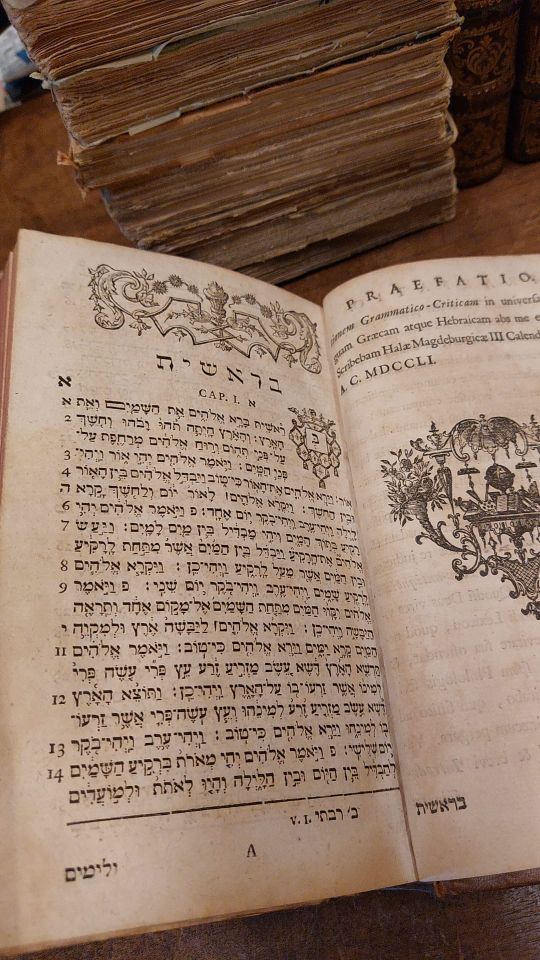 PRAEFATIO
nem Grammatico-Criticam in universa
guam Græcam atque Hebraicam abs me e
Scribebam Halæ Magdeburgicæ III Calend
A. C. MDCCLI.
בראשית
בראשית
CAP. I. א
א
ב
ראשית בָּרָא אֱלֹהִים אֵת הַשָּׁמַיִם וְאֵת א
הָאָרֶץ: וְהָאָרֶץ הָיְתָה תֹהוּ וָבֹהוּ וְחֹשֶׁךְ 2
עַל־פְּנֵי תְהוֹם וְרוּחַ אֱלֹהִים מְרַחֶפֶת עַל־
פְּנֵי הַמָּיִם: וַיֹּאמֶר אֱלֹהִים יְהִי אוֹר וַיְהִי־ 3
אוֹר: וַיַּרְא אֱלֹהִים אֶת־הָאוֹר כִּי־טוֹב וַיַּבְדֵּל אֱלֹהִים בֵּין הָאוֹר 4
וּבֵין הַחֹשֶׁךְ: וַיִּקְרָא אֱלֹהִים׀ לָאוֹר יוֹם וְלַחֹשֶׁךְ קָרָא ה
לָיְלָה וַיְהִי־עֶרֶב וַיְהִי־בֹקֶר יוֹם אֶחָד: פ וַיֹּאמֶר אֱלֹהִים יְהִי 6
רָקִיעַ בְּתוֹךְ הַמָּיִם וִיהִי מַבְדִּיל בֵּין מַיִם לָמָיִם: וַיַּעַשׂ 7
אֱלֹהִים אֶת־הָרָקִיעַ וַיַּבְדֵּל בֵּין הַמַּיִם אֲשֶׁר מִתַּחַת לָרָקִיעַ
וּבֵין הַמַּיִם אֲשֶׁר מֵעַל לָרָקִיעַ וַיְהִי־כֵן: וַיִּקְרָא אֱלֹהִים 8
לָרָקִיעַ שָׁמָיִם וַיְהִי־עֶרֶב וַיְהִי־בֹקֶר יוֹם שֵׁנִי: פ וַיֹּאמֶר 9
אֱלֹהִים יִקָּווּ הַמַּיִם מִתַּחַת הַשָּׁמַיִם אֶל־מָקוֹם אֶחָד וְתֵרָאֶה
הַיַּבָּשָׁה וַיְהִי־כֵן: וַיִּקְרָא אֱלֹהִים׀ לַיַּבָּשָׁה אֶרֶץ וּלְמִקְוֵה י
הַמַּיִם קָרָא יַמִּים וַיַּרְא אֱלֹהִים כִּי־טוֹב: וַיֹּאמֶר אֱלֹהִים 11
תַּדְשֵׁא הָאָרֶץ דֶּשֶׁא עֵשֶׂב מַזְרִיעַ זֶרַע עֵץ פְּרִי עֹשֶׂה פְּרִי
לְמִינוֹ אֲשֶׁר זַרְעוֹ־בוֹ עַל־הָאָרֶץ וַיְהִי־כֵן: וַתּוֹצֵא הָאָרֶץ 12
דֶּשֶׁא עֵשֶׂב מַזְרִיעַ זֶרַע לְמִינֵהוּ וְעֵץ עֹשֶׂה־פְּרִי אֲשֶׁר זַרְעוֹ־
בוֹ לְמִינֵהוּ וַיַּרְא אֱלֹהִים כִּי־טוֹב: וַיְהִי־עֶרֶב וַיְהִי־בֹקֶר 13
יוֹם שְׁלִישִׁי: פ וַיֹּאמֶר אֱלֹהִים יְהִי מְאֹרֹת בִּרְקִיעַ הַשָּׁמַיִם 14
לְהַבְדִּיל בֵּין הַיּוֹם וּבֵין הַלָּיְלָה וְהָיוּ לְאֹתֹת וּלְמוֹעֲדִים
ב׳ רבתי V. I.
A
ולימים